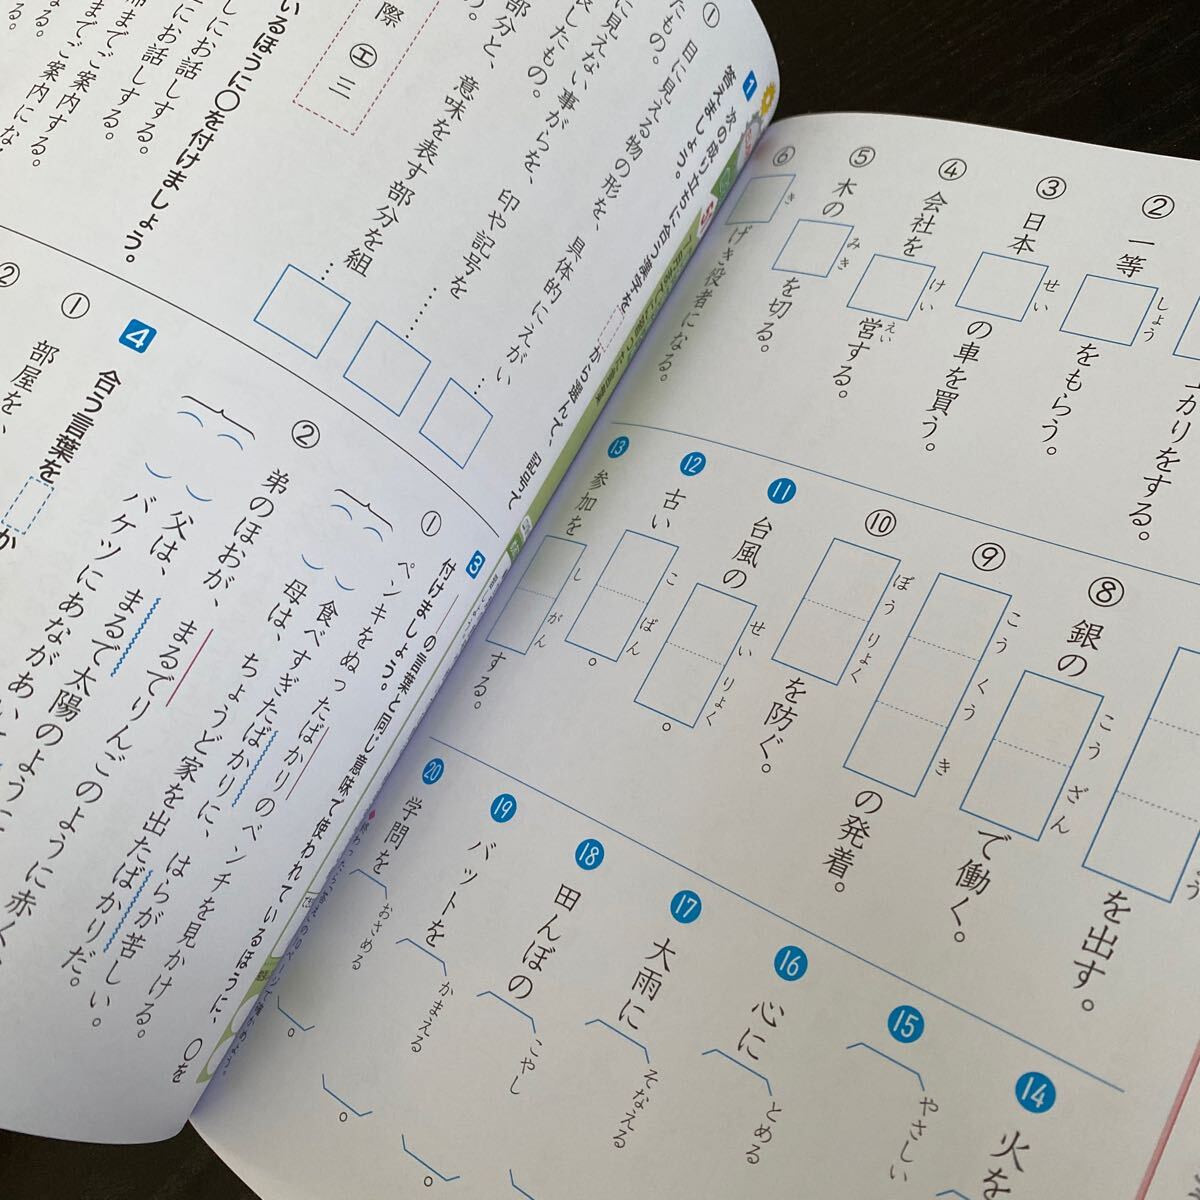 ② 一等□をもらう。
しょう
③ 日本□の車を買う。
せい
④ 会社を□営する。
けい
えい
⑤ 木の□を切る。
みき
⑥ □げき役者になる。
き
⑧ 銀の□を出す。
⑨ □で働く。
こうざん
⑩ □の発着。
こうくうき
⑪ 台風の□を防ぐ。
ぼうりょく
⑫ 古い□。
せいりょく
⑬ 参加を□する。
こばん
しがん
⑭ 火を
⑮
やさしい
⑯ 心に
とめる
⑰ 大雨に
そなえる
⑱ 田んぼの
こやし
。
⑲ バットを
かまえる
。
⑳ 学問を
おさめる
。
1 次の成り立ちに合う漢字を から選んで、記号で
答えましょう。
① 目に見える物の形を、具体的にえがい
たもの。
に見えない事がらを、印や記号を
表したもの。
部分と、意味を表す部分を組
際 エ 三
いるほうに○を付けましょう。
しにお話しする。
にお話しする。
までご案内する。
3
付けましょう。
の言葉と同じ意味で使われているほうに、○を
① ペンキをぬったばかりのベンチを見かける。
食べすぎたばかりに、はらが苦しい。
母は、ちょうど家を出たばかりだ。
② 弟のほおが、まるでりんごのように赤く
父は、まるで太陽のように
バケツにあながあい
4 合う言葉を か
① 部屋を、
②